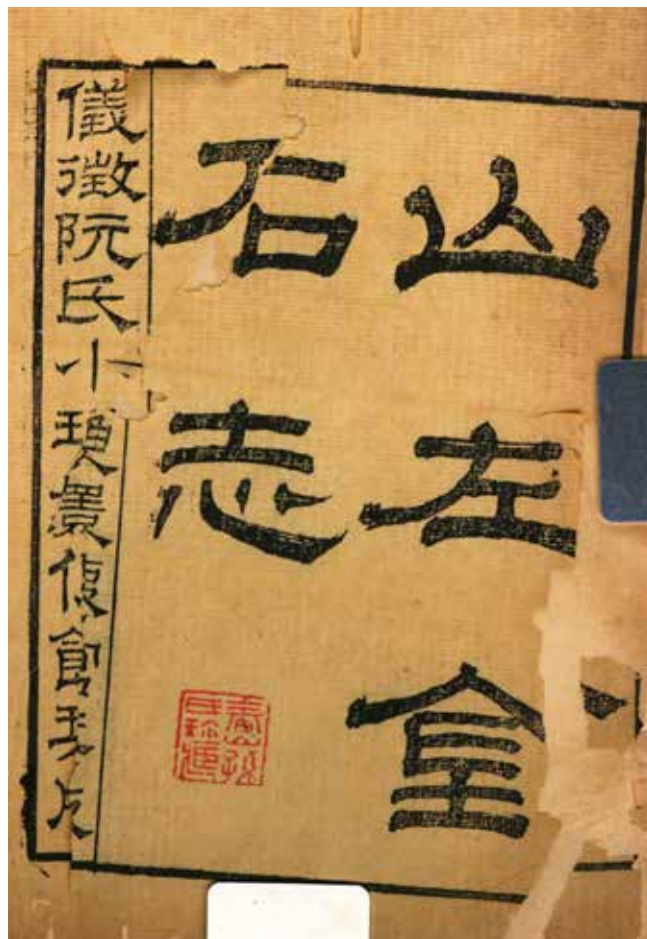 山左金
石志
儀徵阮氏小琅嬛僊館